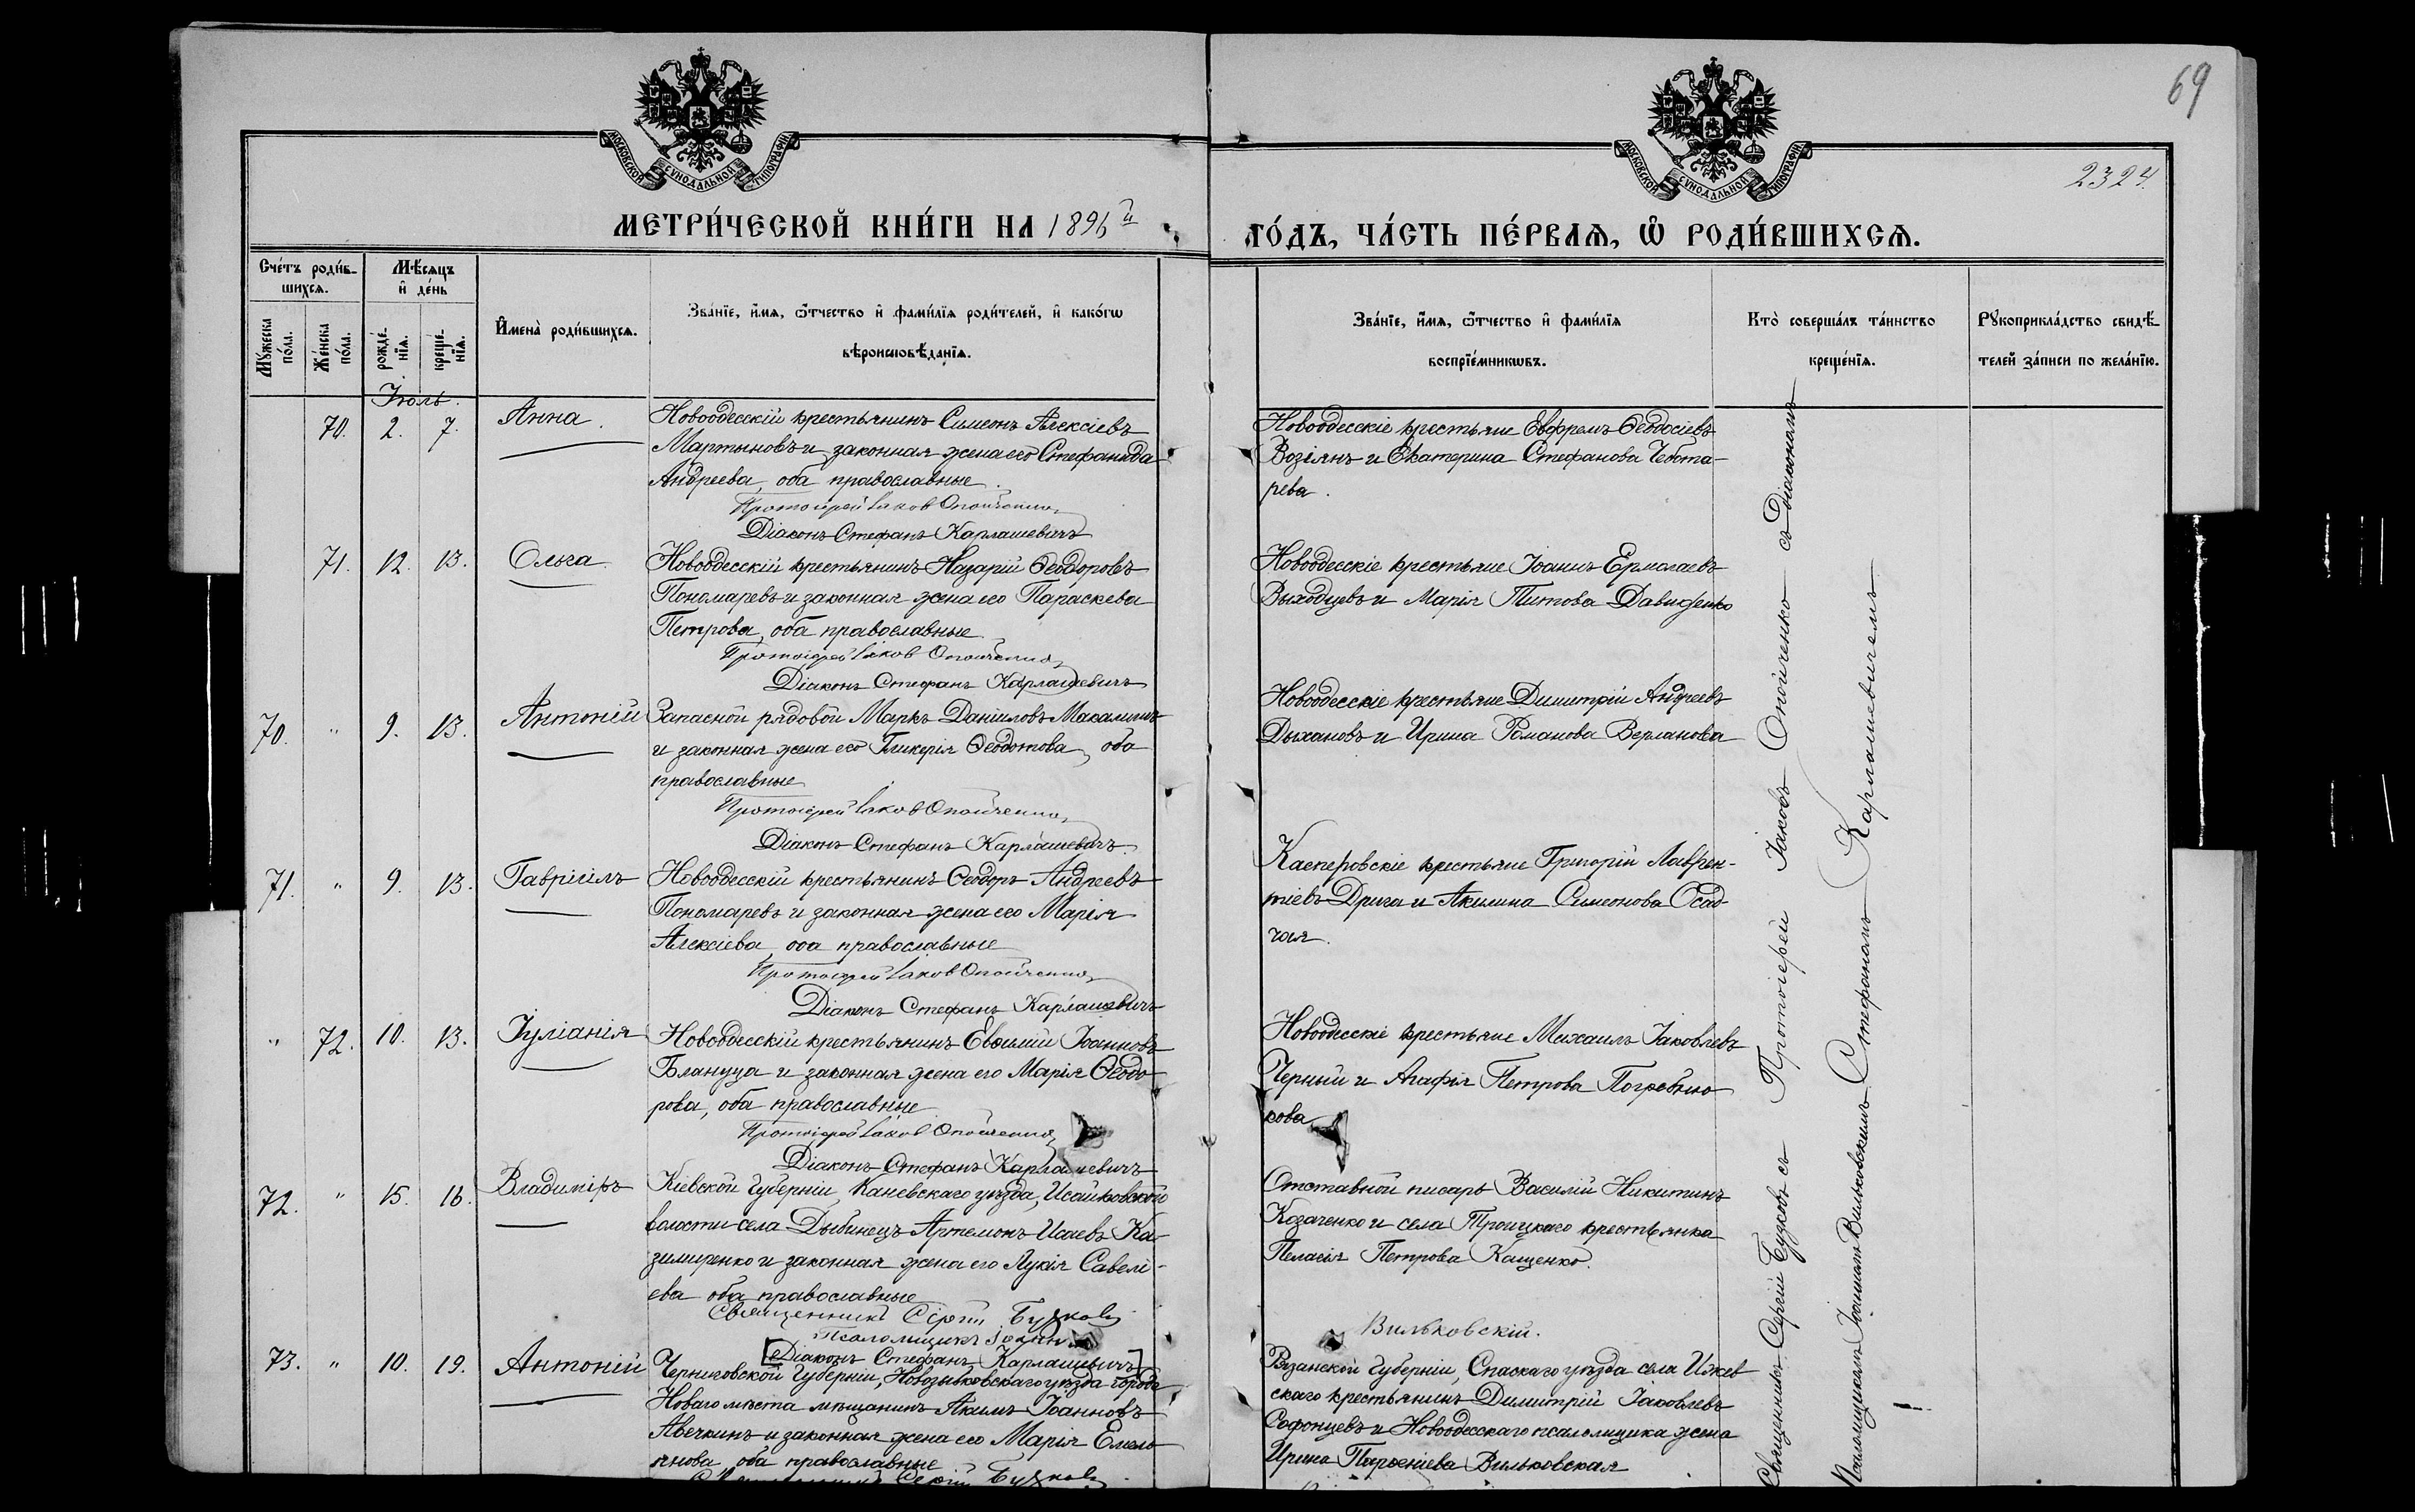 69
2324.
МОСКОВСКОЙ СѴНОДАЛЬНОЙ ТИПОГРАФІИ
МОСКОВСКОЙ СѴНОДАЛЬНОЙ ТИПОГРАФІИ
МЕТРИ́ЧЕСКОЙ КНИ́ГИ НА 1896й
ГО́ДЪ, ЧА́СТЬ ПЕ́РВАЯ, Ѿ РОДИ́ВШИХСЯ.
Сче́тъ роди́в-
шихся.
Мꙋжеска по́ла.
Же́нска по́ла.
Мѣ́сяцъ
и҆ де́нь
рожде́-
нїя.
креще́-
нїя.
И҆мена̀ роди́вшихся.
Зва́нїе, и҆́мя, ѻ҆́тчество и҆ фами́лїя роди́телей, и҆ како́гѡ
вѣроисповѣ́данїя.
Зва́нїе, и҆́мя, ѻ҆́тчество и҆ фами́лїя
воспрїе́мникѡвъ.
Кто̀ соверша́лъ та́инство
креще́нїя.
Рꙋкоприкла́дство свидѣ́-
телей за́писи по жела́нїю.
Іюль.
70. 2. 7. Анна.
Новоодесскій крестьянинъ Симеонъ Алексіевъ
Мартыновъ и законная жена его Стефанида
Андреева, оба православные.
Протоіерей Іаков Опойченко
Діаконъ Стефанъ Карлашевичъ
Новоодесскіе крестьяне Евфремъ Ѳеодосіевъ
Возіянъ и Екатерина Стефанова Чебота-
рева.
71. 12. 13. Ольга.
Новоодесскій крестьянинъ Назарій Ѳеодоровъ
Пономаревъ и законная жена его Параскева
Петрова, оба православные
Протоіерей Іаков Опойченко
Діаконъ Стефанъ Карлашевичъ
Новоодесскіе крестьяне Іоаннъ Ермолаевъ
Выходцевъ и Марія Титова Давиденко
70. " 9. 13. Антоній
Запасной рядовой Маркъ Даніиловъ
и законная жена его Гликерія Ѳеодотова, оба
православные
Протоіерей Іаков Опойченко
Діаконъ Стефанъ Карлашевичъ.
Новоодесскіе крестьяне Димитрій Андреевъ
Дыхановъ и Ирина Романова Верланова
71. " 9. 13. Гавріилъ
Новоодесскій крестьянинъ Ѳеодоръ Андреевъ
Пономаревъ и законная жена его Марія
Алексіева, оба православные
Протоіерей Іаков Опойченко
Діаконъ Стефанъ Карлашевичъ
Касперовскіе крестьяне Григорій Лаврен-
тіевъ Дрига и Акилина Симеонова Осад-
чая.
" 72. 10. 13. Іуліанія
Новоодесскій крестьянинъ Евѳимій Іоанновъ
Блануца и законная жена его Марія Ѳеодо-
рова, оба православные
Протоіерей Іаков Опойченко
Діаконъ Стефанъ Карлашевичъ
Новоодесскіе крестьяне Михаилъ Іаковлевъ
Черный и Агафія Петрова Погребню-
кова
72. " 15. 16. Владиміръ
Кіевской Губерніи, Каневскаго уѣзда, Исайковской
волости села Дыбинецъ Артемонъ Исаевъ Ка-
зимиренко и законная жена его Лукія Савелі-
ева оба православные
Священникъ Сергій Будков
Псаломщикъ Іоаннъ
[Діаконъ Стефанъ Карлашевичъ]
Отставной писарь Василій Никитинъ
Козаченко и села Троицкаго крестьянка
Пелагія Петрова Кащенко.
Вильковскій.
73. " 10. 19. Антоній
Черниговской Губерніи, Новозыбковскаго уѣзда города
Новаго мѣста мѣщанинъ Акимъ Іоанновъ
Авечкинъ и законная жена его Марія Емель-
янова, оба православные
Священникъ Сергій Будков
Рязанской Губерніи, Спаскаго уѣзда села Ижев
скаго крестьянинъ Димитрій Іаковлевъ
Софонцевъ и Новоодесскаго псаломщика жена
Ирина Парѳеніева Вильковская
Священникъ Сергій Будковъ съ Протоіерей Іаковъ Опойченко съ Діакономъ
Псаломщикомъ Іоанномъ Вильковскимъ Стефаномъ Карлашевичемъ